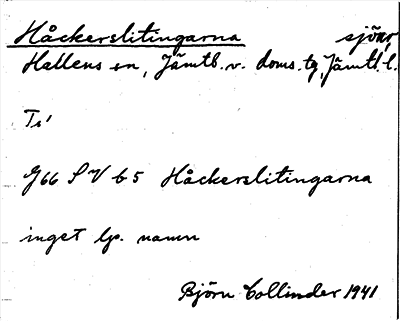 Håckerslitingarna sjöar,
Hallens sn, Jämtl. v. doms. tg, Jämtl. l.
Ts'
G66 SV b5 Håckerslitingarna
inget lp. namn
Björn Collinder 1941